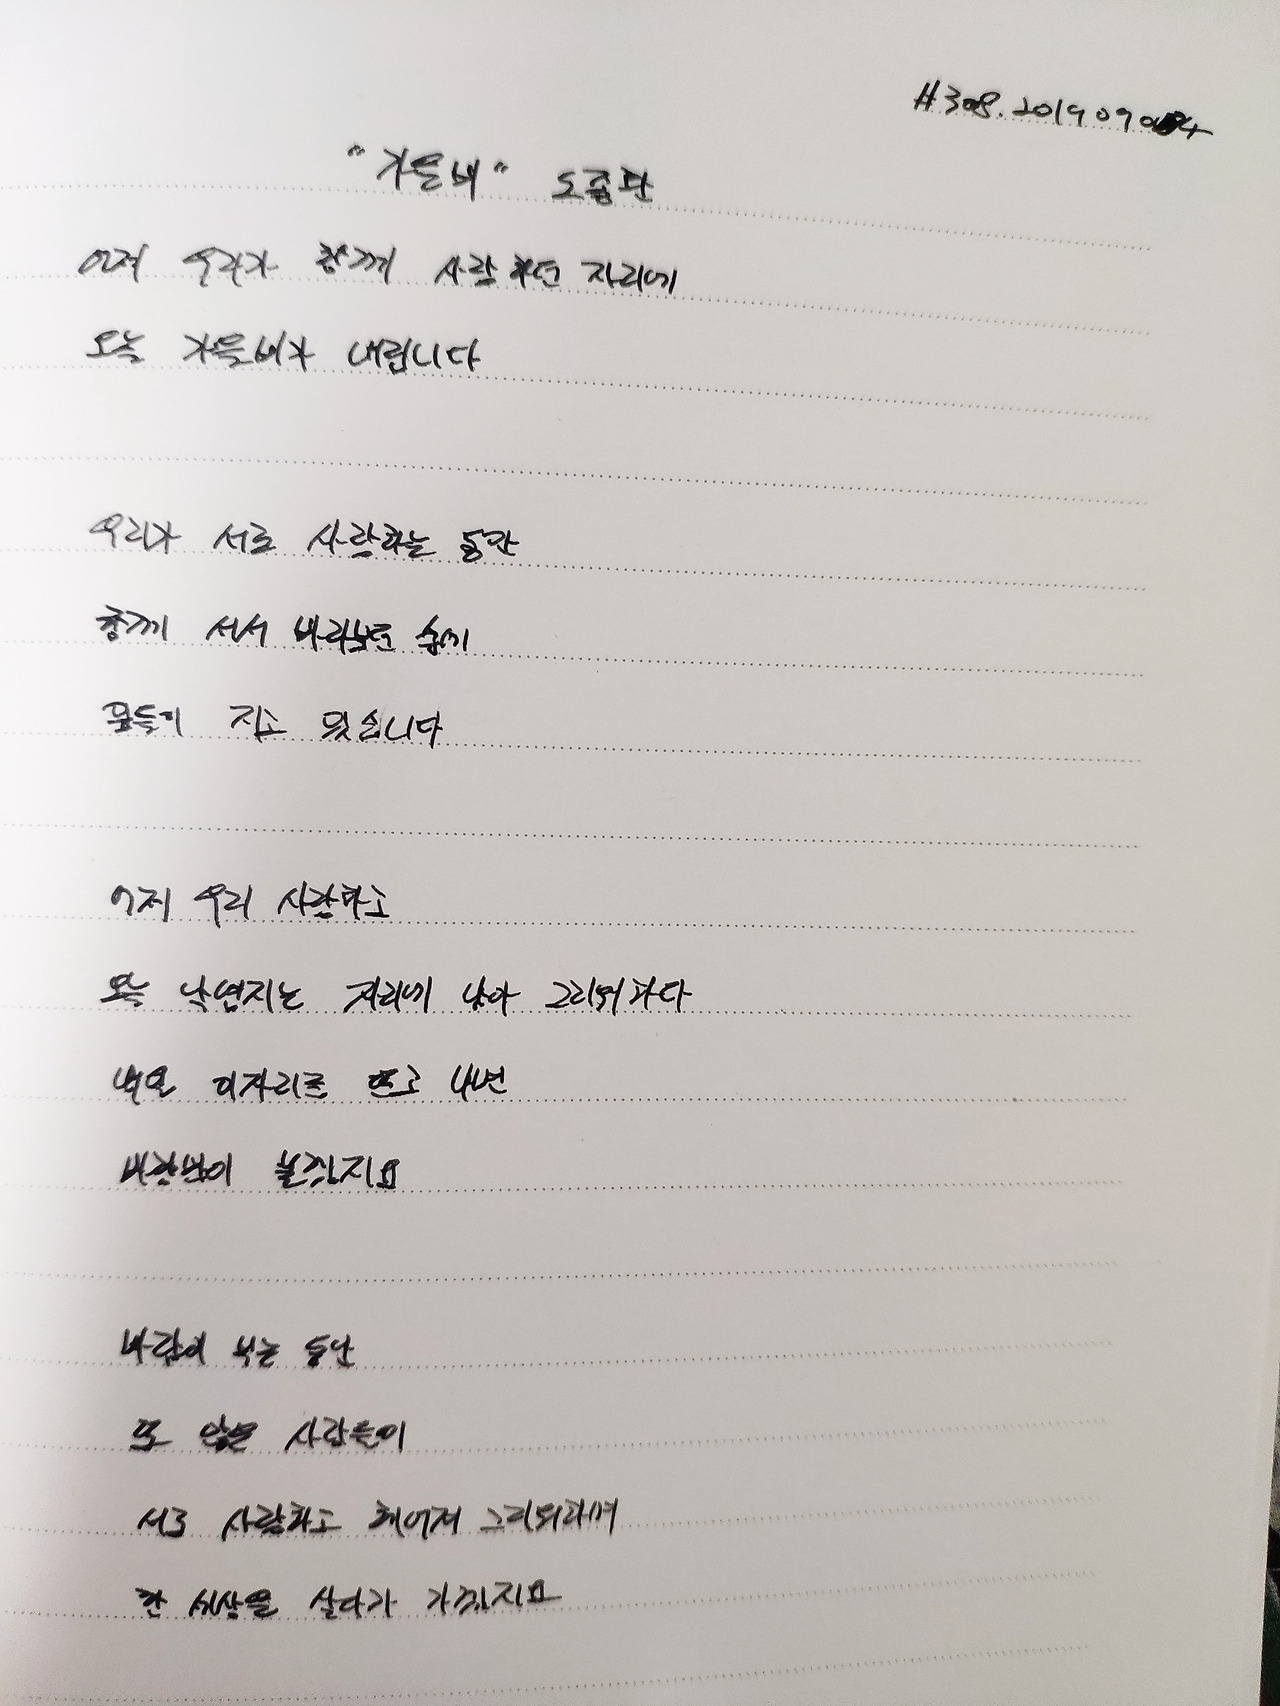 #308. 20190904
"가을비" 도종환
어제 우리가 함께 사랑하던 자리에
오늘 가을비가 내립니다
우리가 서로 사랑하는 동안
함께 서서 바라보던 숲에
잎들이 지고 있습니다
어제 우리 사랑하고
오늘 낙엽지는 자리에 남아 그리워하다
내일 이자리를 뜨고 나면
바람만이 불겠지요
바람이 부는 동안
또 많은 사람들이
서로 사랑하고 헤어져 그리워하며
한 세상을 살다가 가겠지요